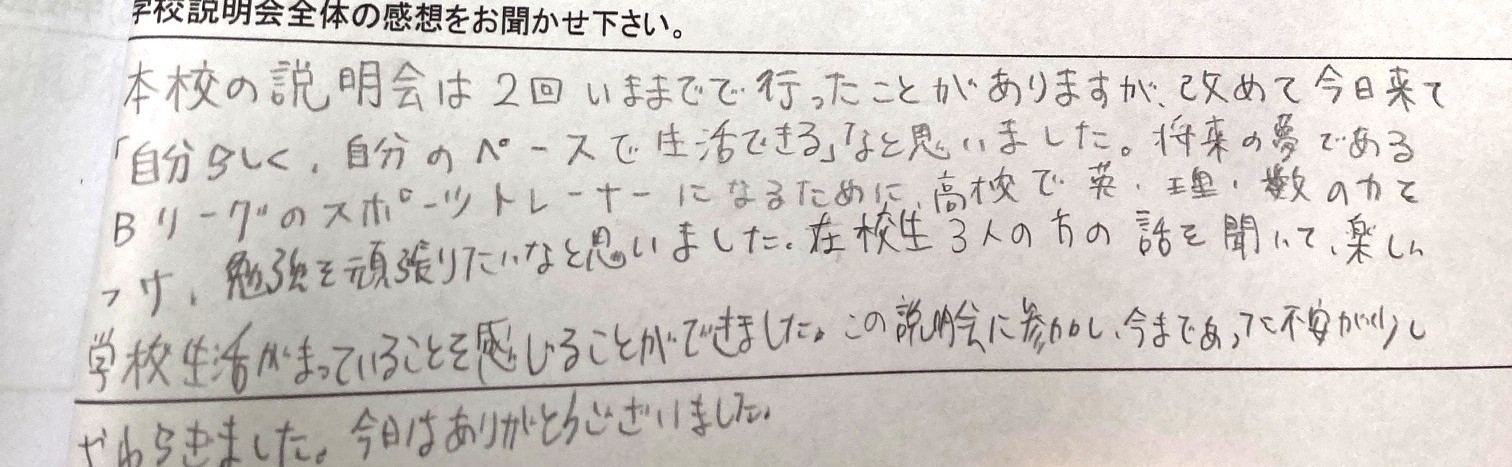 学校説明会全体の感想をお聞かせ下さい。
本校の説明会は2回いままでで行ったことがありますが、改めて今日来て
「自分らしく、自分のペースで生活できる」なと思いました。将来の夢である
Bリーグのスポーツトレーナーになるために、高校で英・理・数の力を
つけ、勉強を頑張りたいなと思いました。在校生3人の方の話を聞いて、楽しい
学校生活がまっていることを感じることができました。この説明会に参加し、今まであった不安が少し
やわらきました。今日はありがとうございました。